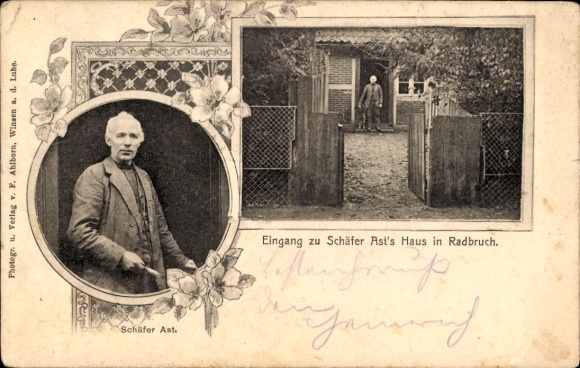 Photogr. u. Verlag v. F. Ahlborn, Winsen a. d. Luhe.
Eingang zu Schäfer Ast's Haus in Radbruch.
Schäfer Ast.